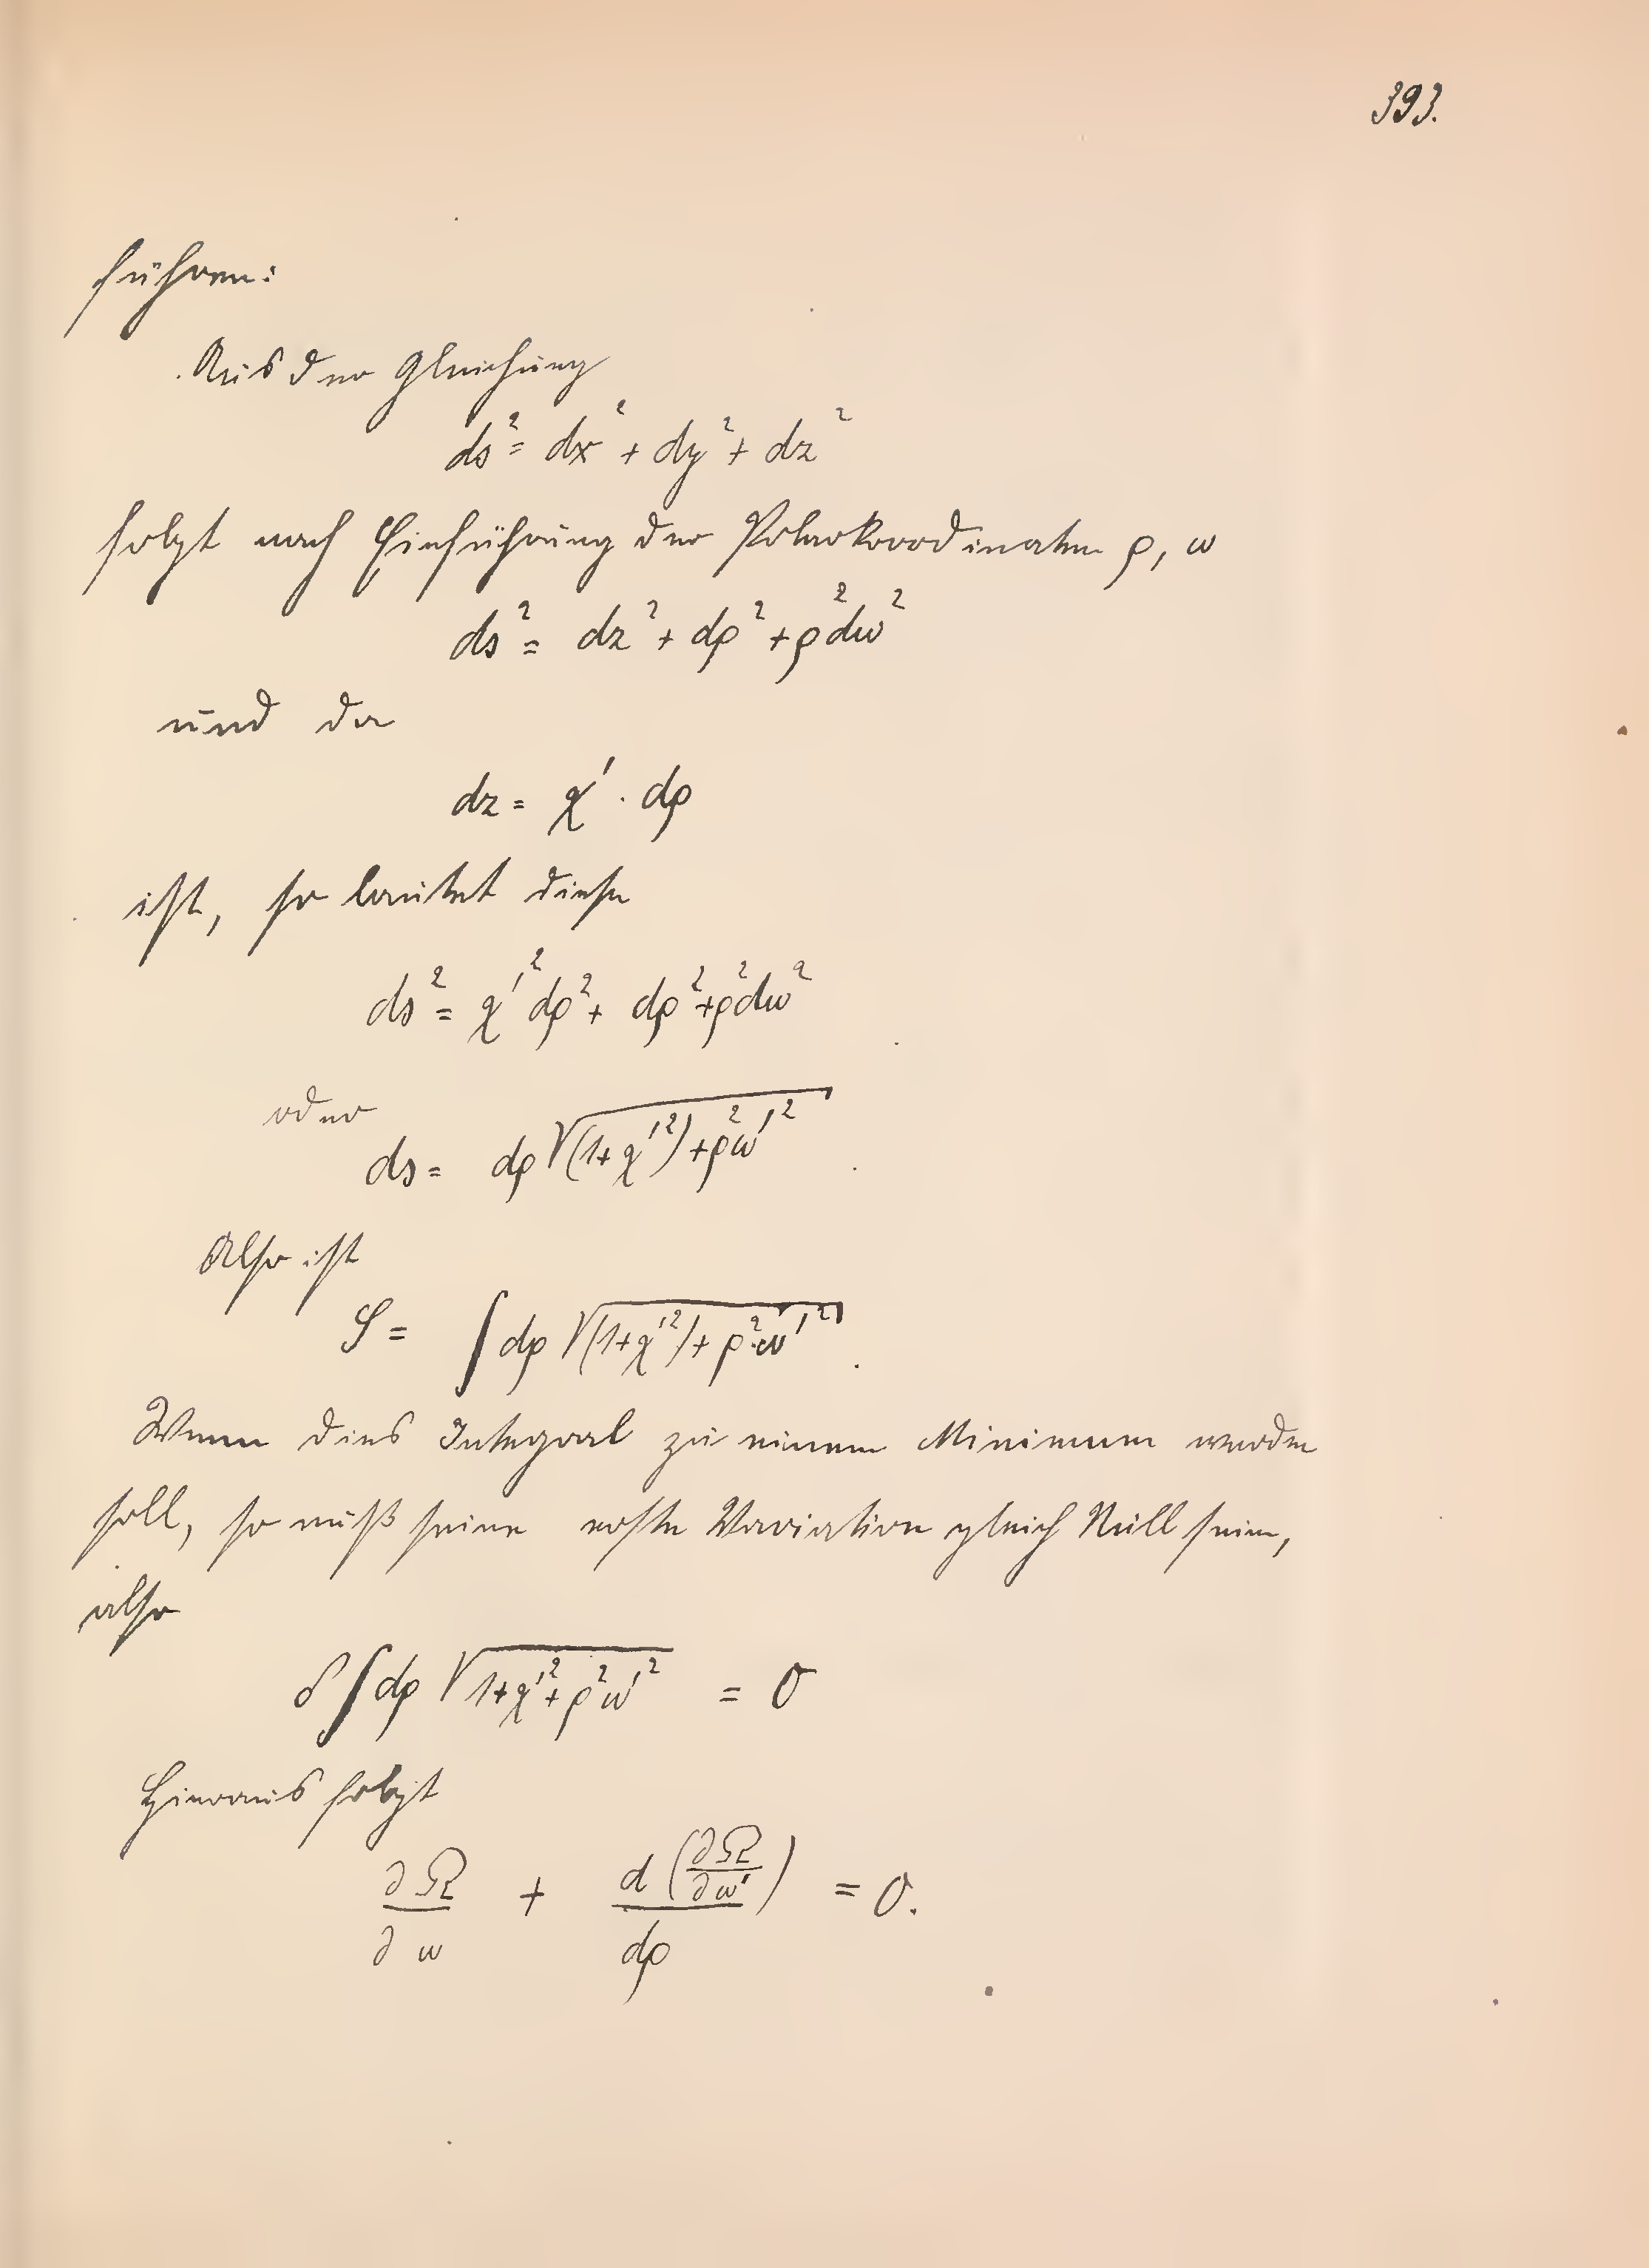 393.
führen:
Aus der Gleichung
ds² = dx² + dy² + dz²
folgt nach Einführung der Polarkoordinaten ρ, ω
ds² = dz² + dρ² + ρ²dω²
und da
dz = χ′ · dρ
ist, so lautet diese
ds² = χ′²dρ² + dρ² + ρ²dω²
oder
ds = dρ √((1+χ′²)+ρ²ω′²)
Also ist
S = ∫ dρ √((1+χ′²)+ρ²·ω′²).
Wenn dies Integral zu einem Minimum werden
soll, so muß seine erste Variation gleich Null sein,
also
δ∫dρ √(1+χ′²+ρ²ω′²) = 0
Hieraus folgt
∂Ω/∂ω + d(∂Ω/∂ω′)/dρ = 0.